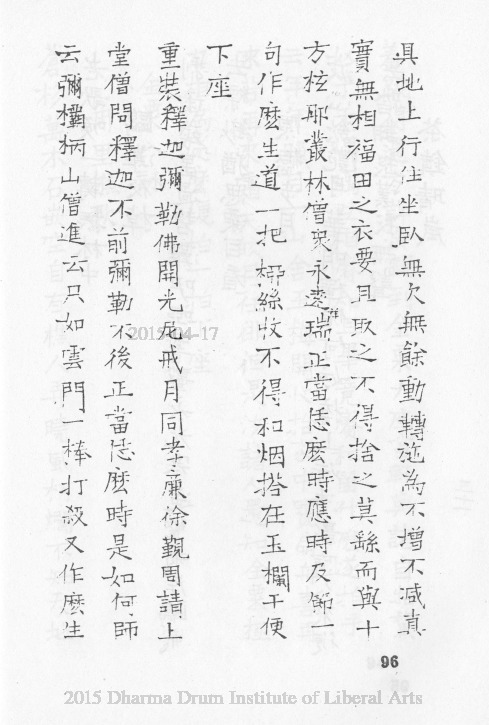 具地上行住坐臥無欠無餘動轉施為不增不減真
實無相福田之衣要且取之不得捨之莫繇而與十
方檀那叢林僧眾永遠瑞祥正當恁麼時應時及節一
句作麼生道一把柳絲收不得和烟搭在玉欄干便
下座
重裝釋迦彌勒佛開光 戒月同孝廉徐觀周請上
堂僧問釋迦不前彌勒不後正當恁麼時是如何師
云彌 柄山僧進云只如雲門一棒打殺又作麼生
96
2015-04-17
2015 Dharma Drum Institute of Liberal Arts